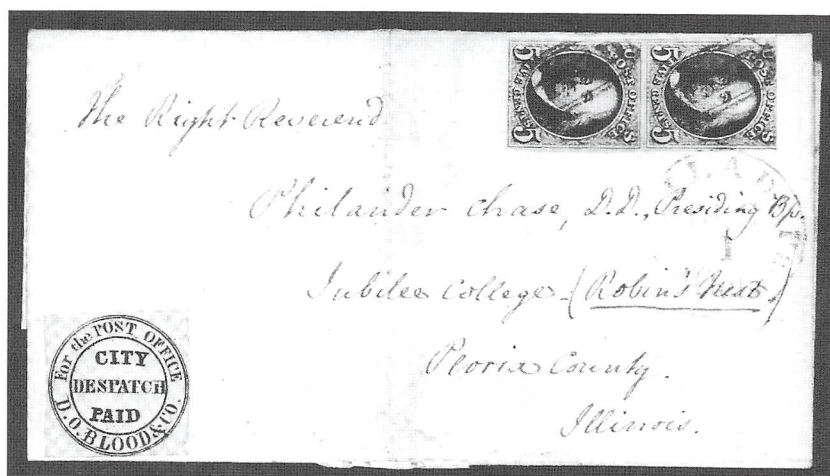 POST OFFICE
5 5
POST OFFICE
5 5
The Right Reverend
Philander Chase, D.D., Presiding Bp.
Jubilee College (Robin's Nest)
Peoria County.
Illinois.
For the POST OFFICE
CITY
DESPATCH
PAID
D.O. BLOOD & CO.